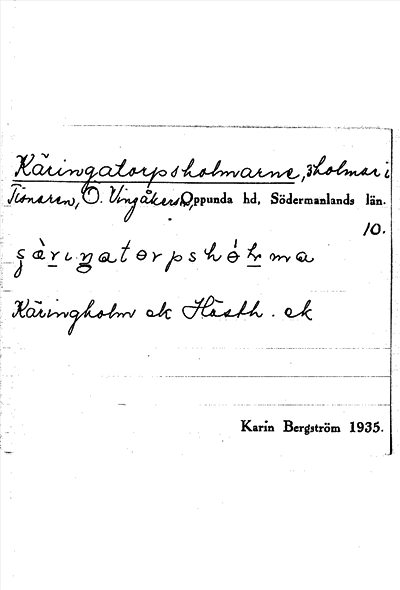 Käringatorpsholmarne, 3 holmar i
Tisnaren, Ö. Vingåkers sn, Oppunda hd, Södermanlands län.
10.
Käringholm ek Hästh. ek
Karin Bergström 1935.